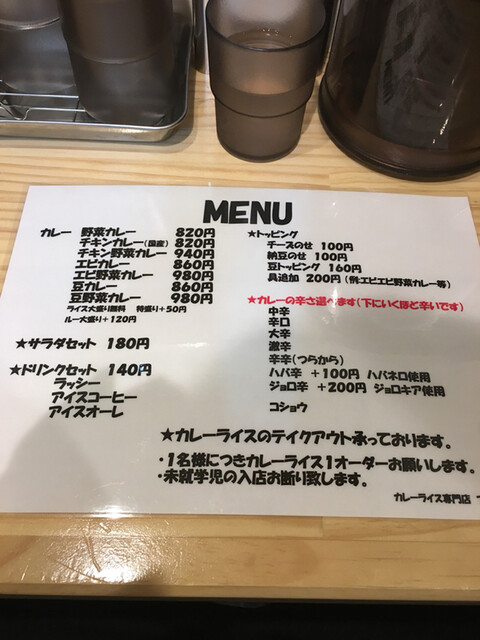 MENU
カレー 野菜カレー 820円
チキンカレー(国産) 820円
チキン野菜カレー 940円
エビカレー 860円
エビ野菜カレー 980円
豆カレー 860円
豆野菜カレー 980円
ライス大盛り無料 特盛り+50円
ルー大盛り+120円
★サラダセット 180円
★ドリンクセット 140円
ラッシー
アイスコーヒー
アイスオーレ
★トッピング
チーズのせ 100円
納豆のせ 100円
豆トッピング 160円
具追加 200円 (例:エビエビ野菜カレー等)
★カレーの辛さ選べます(下にいくほど辛いです)
中辛
辛口
大辛
激辛
辛辛(つらから)
ハバ辛 +100円 ハバネロ使用
ジョロ辛 +200円 ジョロキア使用
コショウ
★カレーライスのテイクアウト承っております。
・1名様につきカレーライス1オーダーお願いします。
・未就学児の入店お断り致します。
カレーライス専門店